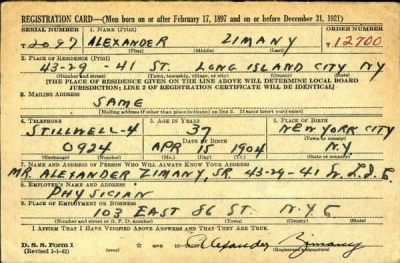 REGISTRATION CARD—(Men born on or after February 17, 1897 and on or before December 31, 1921)
SERIAL NUMBER 1. NAME (Print) ORDER NUMBER
T 2097 ALEXANDER ZIMANY T12700
(First) (Middle) (Last)
2. PLACE OF RESIDENCE (Print)
43-29-41 ST. LONG ISLAND CITY NY
(Number and street) (Town, township, village, or city) (County) (State)
[THE PLACE OF RESIDENCE GIVEN ON THE LINE ABOVE WILL DETERMINE LOCAL BOARD
JURISDICTION; LINE 2 OF REGISTRATION CERTIFICATE WILL BE IDENTICAL]
3. MAILING ADDRESS
SAME
[Mailing address if other than place indicated on line 2. If same insert word same]
4. TELEPHONE 5. AGE IN YEARS 6. PLACE OF BIRTH
STILLWELL-4 37 NEW YORK CITY
DATE OF BIRTH (Town or county)
0924 APR 15 1904 N.Y.
(Exchange) (Number) (Mo.) (Day) (Yr.) (State or country)
7. NAME AND ADDRESS OF PERSON WHO WILL ALWAYS KNOW YOUR ADDRESS
MR. ALEXANDER ZIMANY, SR. 43-29-41
8. EMPLOYER'S NAME AND ADDRESS
PHYSICIAN
9. PLACE OF EMPLOYMENT OR BUSINESS
103 EAST 86 ST. N.Y.C
(Number and street or R. F. D. number) (Town) (County) (State)
I AFFIRM THAT I HAVE VERIFIED ABOVE ANSWERS AND THAT THEY ARE TRUE.
D. S. S. Form 1
(Revised 1-1-42) Alexander Zimany
(Registrant's signature)